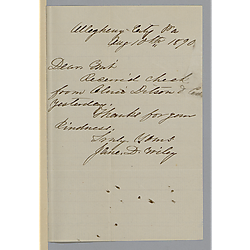 Allegheny City Pa
Aug 10th 1890.
Dear
Received check
from Oliver Ditson & Co
yesterday.
Thanks for your
kindness,
Truly Yours
James D.